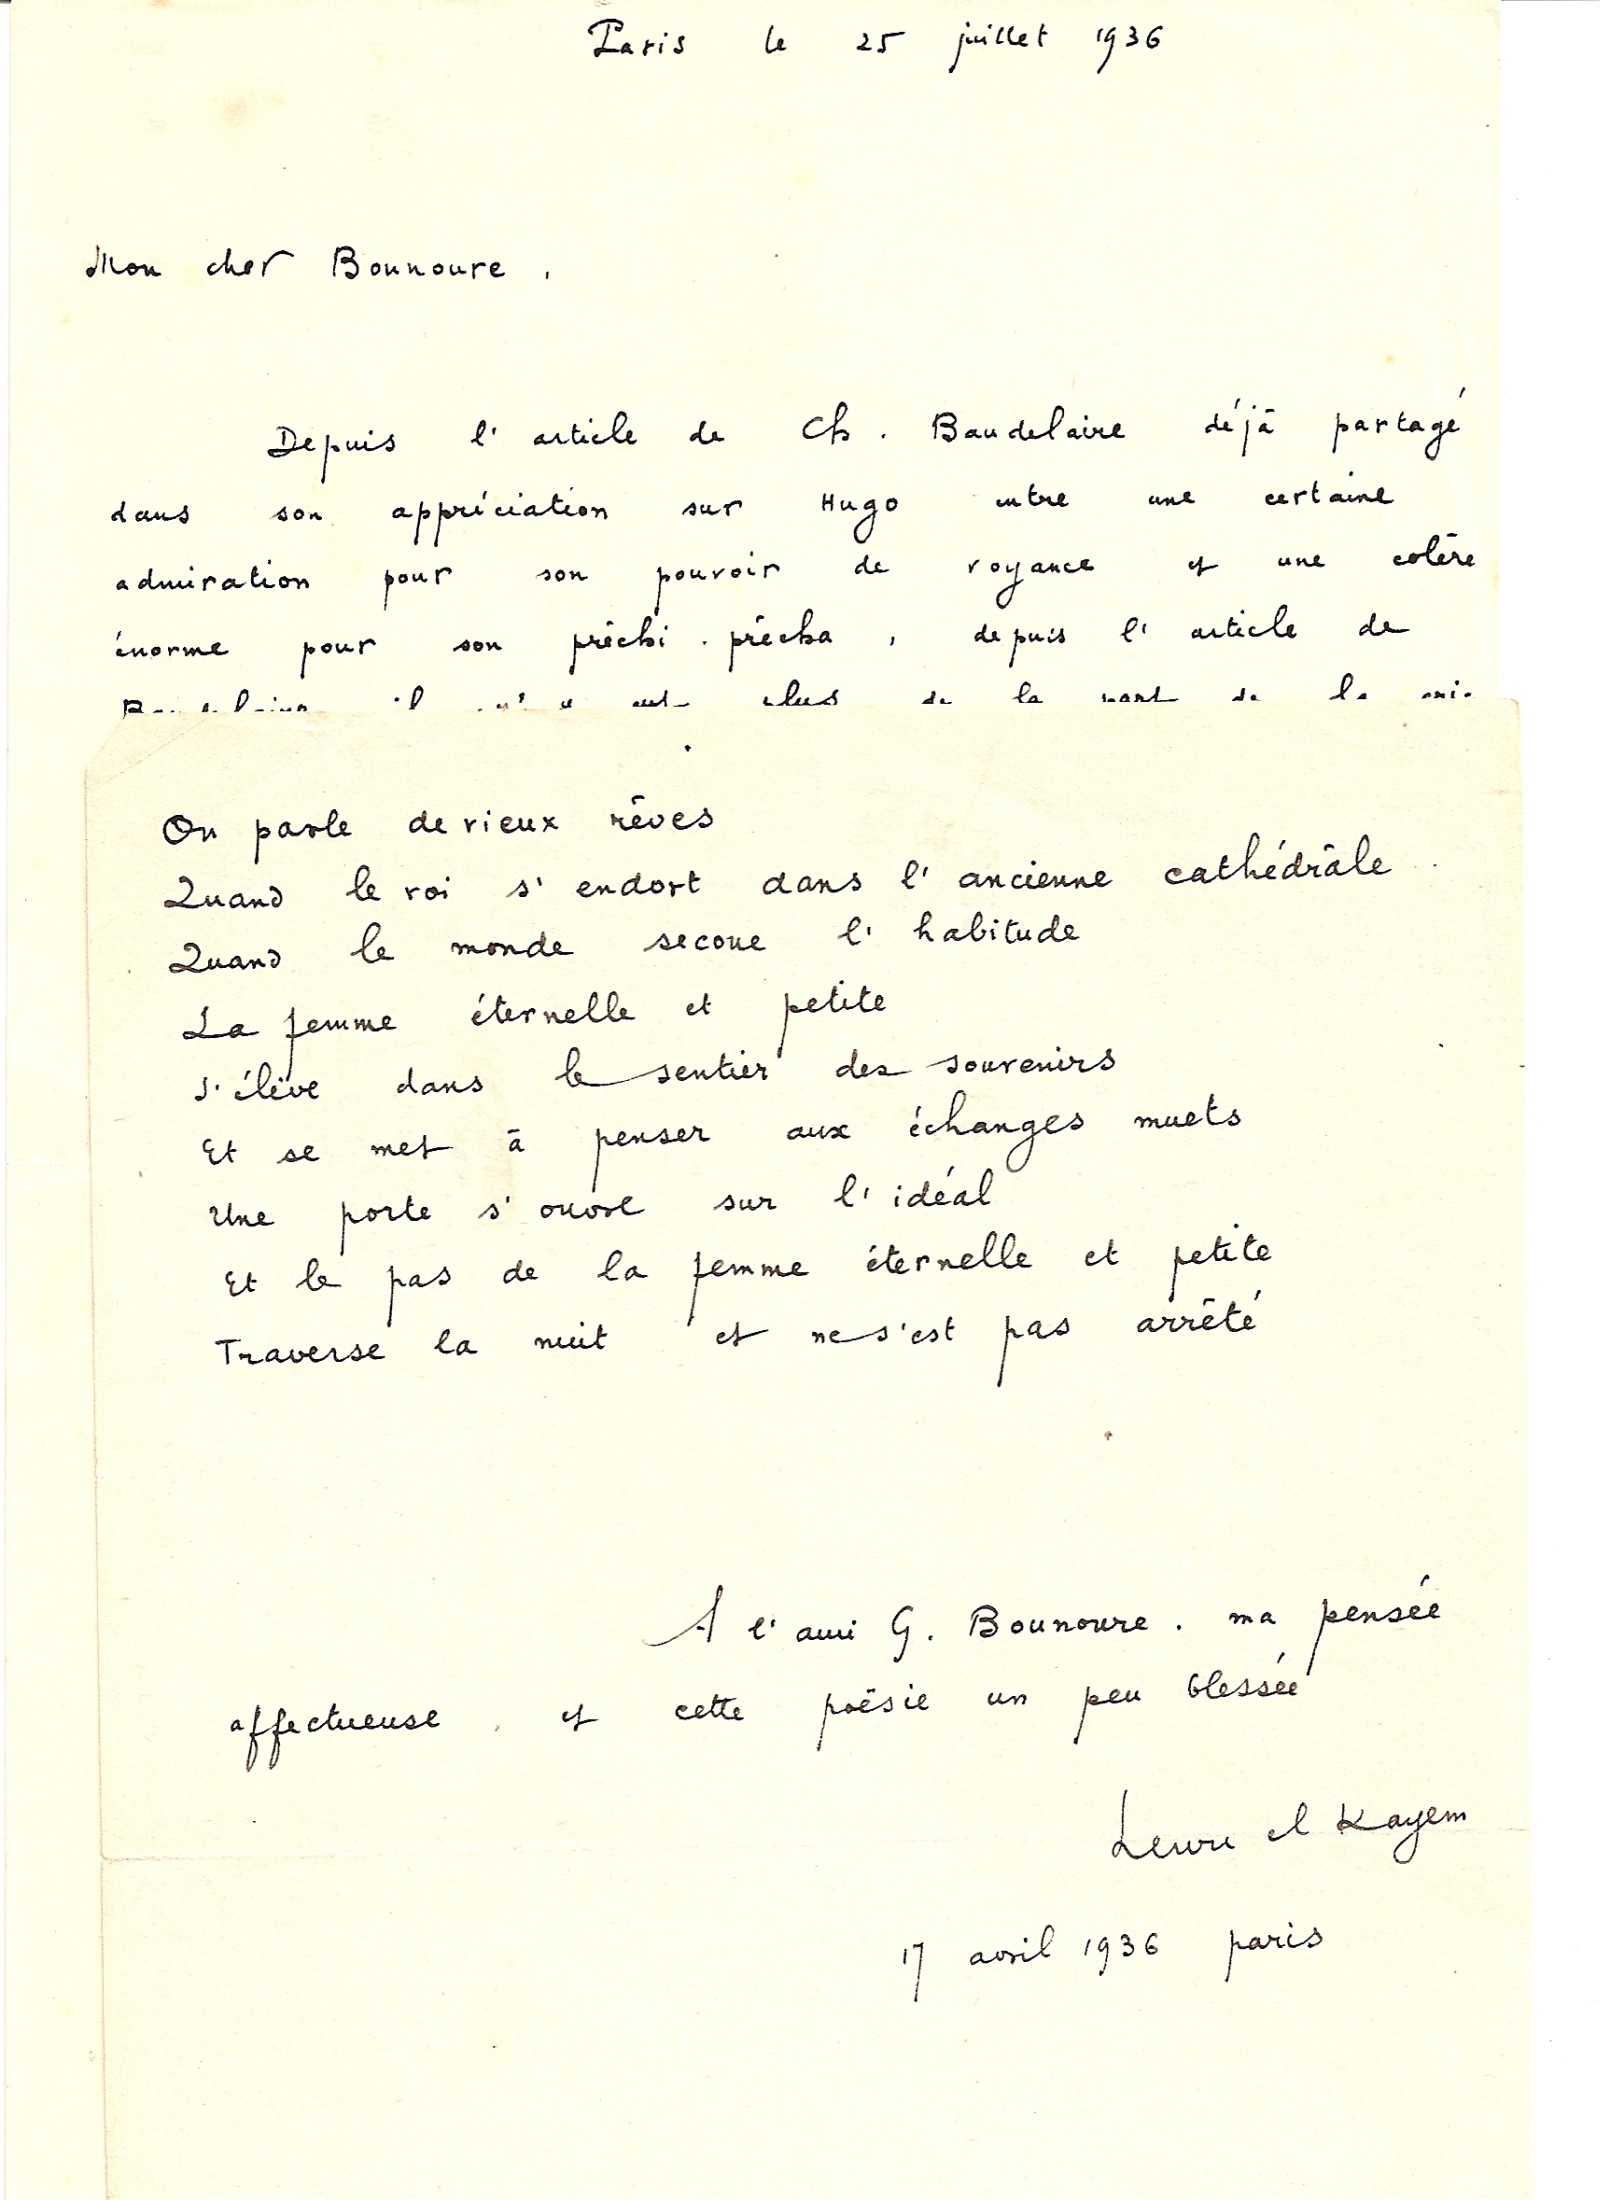 Paris le 25 juillet 1936
Mon cher Bounoure,
Depuis l'article de Ch. Baudelaire déjà partagé
dans son appréciation sur Hugo entre une certaine
admiration pour son pouvoir de voyance et une colère
énorme pour son prêchi-prêcha, depuis l'article de
Baudelaire il n'y eut plus de la part de la
On parle de vieux rêves
Quand le roi s'endort dans l'ancienne cathédrâle
Quand le monde secoue l'habitude
La femme éternelle et petite
S'élève dans le sentier des souvenirs
Et se met à penser aux échanges muets
Une porte s'ouvre sur l'idéal
Et le pas de la femme éternelle et petite
Traverse la nuit et ne s'est pas arrêté
A l'ami G. Bounoure. ma pensée
affectueuse, et cette poësie un peu blessée
Henri el Kayem
17 avril 1936 paris